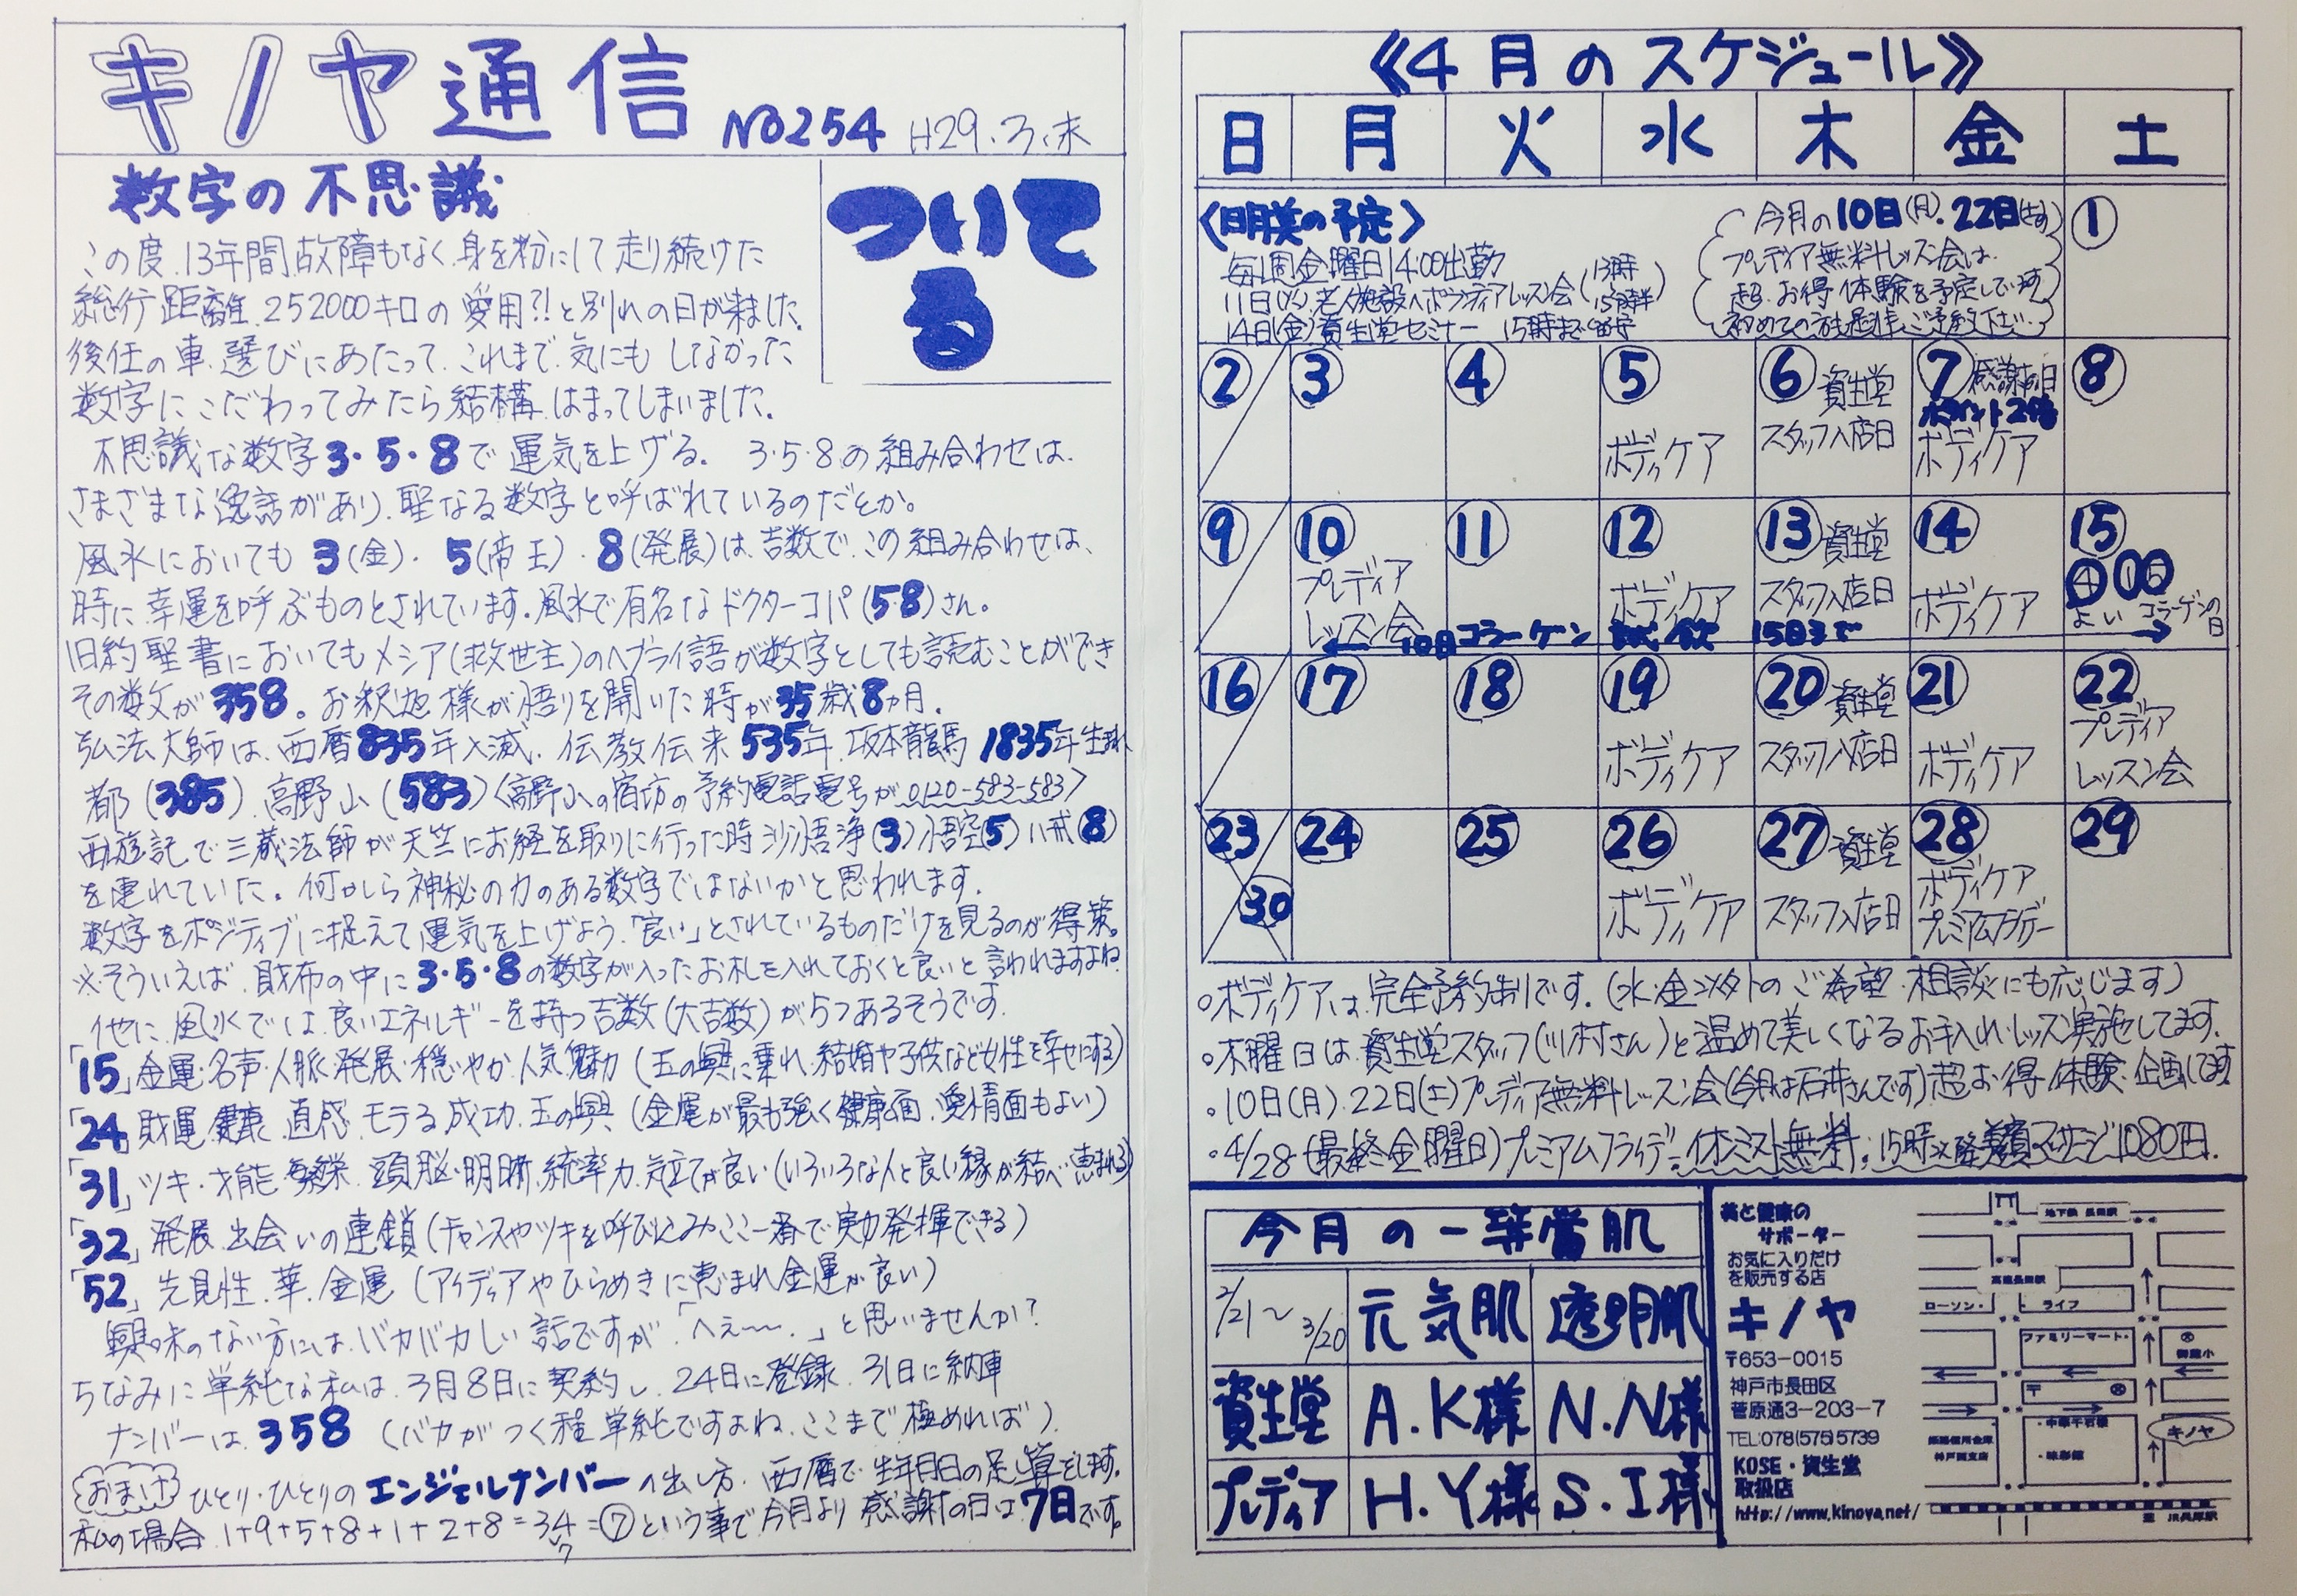 キノヤ通信 NO254 H29.3.末
数字の不思議
ついてる
この度、13年間故障もなく、身を粉にして走り続けた
総行距離、252000キロの愛用?!と別れの日が来ました。
後任の車選びにあたって、これまで気にもしなかった
数字にこだわってみたら結構はまってしまいました。
不思議な数字3・5・8で運気を上げる。 3・5・8の組み合わせは、
さまざまな逸話があり、聖なる数字と呼ばれているのだとか。
風水においても 3(金)・5(帝王)・8(発展)は、吉数で、この組み合わせは、
時に幸運を呼ぶものとされています。風水で有名なドクターコパ(5・8)さん。
旧約聖書においてもメシア(救世主)のヘブライ語が数字としても読むことができ
その数が358。お釈迦様が悟りを開いた時が35歳8ヵ月。
弘法大師は、西暦835年入滅、伝教伝来535年、坂本龍馬1835年生まれ
都(385)、高野山(583)〈高野山の宿坊の予約電話電号が0120-583-583〉
西遊記で三蔵法師が天竺にお経を取りに行った時沙悟浄(3)悟空(5)八戒(8)
を連れていた。何かしら神秘の力のある数字ではないかと思われます。
数字をポジティブに捉えて運気を上げよう。「良い」とされているものだけを見るのが得策。
※そういえば、財布の中に3・5・8の数字が入ったお札を入れておくと良いと言われますよね
他に、風水では、良いエネルギーを持つ吉数(大吉数)が5つあるそうです。
「15」金運・名声・人脈・発展・穏やか・人気・魅力(玉の輿に乗れ、結婚や子供など女性を幸せにする)
「24」財運、健康、直感、モテる、成功、玉の輿(金運が最も強く健康面、愛情面もよい)
「31」ツキ・才能・繁栄、頭脳・明晰、統率力、気立てが良い(いろいろな人と良い縁が結べ恵まれる)
「32」発展、出会いの連鎖(チャンスやツキを呼びこみ、ここ一番で実力発揮できる)
「52」先見性、華、金運(アイディアやひらめきに恵まれ金運が良い)
興味のない方には、バカバカしい話ですが、「へぇ〜〜。」と思いませんか?
ちなみに単純な私は、3月8日に契約し、24日に登録、31日に納車
ナンバーは、358 (バカがつく程単純ですよね、ここまで極めれば)
おまけ ひとり・ひとりのエンジェルナンバーの出し方、西暦で生年月日の足し算をします。
私の場合 1+9+5+8+1+2+8=34=⑦という事で今月より感謝の日は7日です。
7
《4月のスケジュール》
日 月 火 水 木 金 土
〈明美の予定〉
毎週金曜日14:00出勤
11日(火)老人施設へボランティアレッスン会(13時 15時半)
14日(金)資生堂セミナー 15時まで留守
今月の10日(月)、22日(土)
プレディア無料レッスン会は、
超、お得体験を予定しています
初めての方も是非、ご予約下さい…
①
② ③ ④ ⑤ ボディケア ⑥ 資生堂スタッフ入店日 ⑦ 感謝の日 ポイント2倍 ボディケア ⑧
⑨ ⑩ プレディアレッスン会 ⑪ ⑫ ボディケア ⑬ 資生堂スタッフ入店日 ⑭ ボディケア ⑮ よい コラーゲンの日
← 10日 コラーゲン 試飲 15日まで →
⑯ ⑰ ⑱ ⑲ ボディケア ⑳ 資生堂スタッフ入店日 ㉑ ボディケア ㉒ プレディアレッスン会
㉓ ㉔ ㉕ ㉖ ボディケア ㉗ 資生堂スタッフ入店日 ㉘ ボディケア プレミアムフライデー ㉙
㉚
○ボディケアは、完全予約制です。(水・金以外のご希望・相談にも応じます)
○木曜日は、資生堂スタッフ(川村さん)と温めて美しくなるお手入れ・レッスン実施してます。
○10日(月)、22日(土)プレディア無料レッスン会(今月は石井さんです)超お得体験企画してます
○4/28(最終金曜日)プレミアムフライデー、イオンミスト無料。15時以降美顔マッサージ1080円。
今月の一等賞肌
2/21〜3/20 元気肌 透明肌
資生堂 A.K様 N.N様
プレディア H.Y様 S.I様
美と健康の
サポーター
お気に入りだけ
を販売する店
キノヤ
〒653-0015
神戸市長田区
菅原通3-203-7
TEL:078(575)5739
KOSE・資生堂
取扱店
http://www.kinoya.net/
地下鉄 長田駅
高速長田駅
ローソン・
ライフ
ファミリーマート・
御蔵小
〒
神戸西支店
キノヤ
至 JR兵庫駅